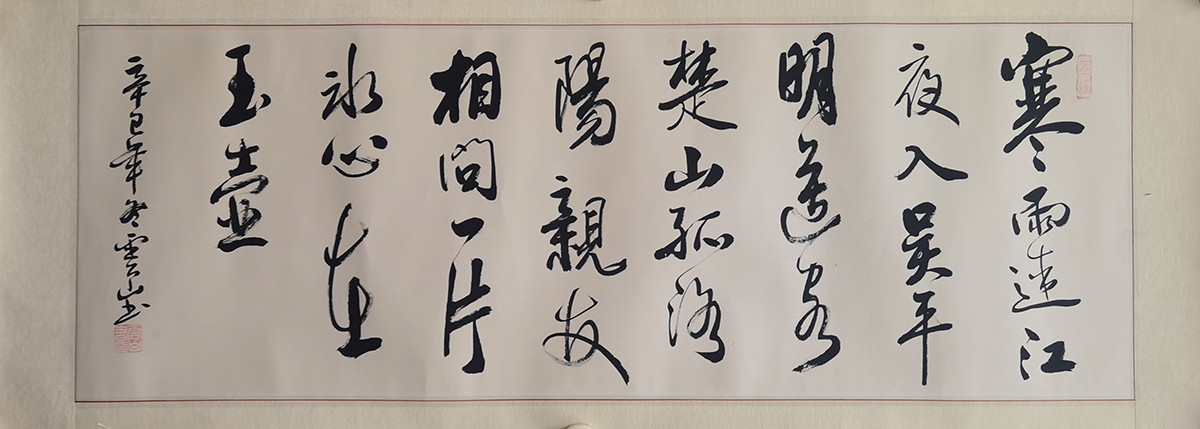 寒雨連江
夜入吴平
明送客
楚山孤洛
陽親友
相問一片
冰心在
玉壺
辛巳年冬雲山书